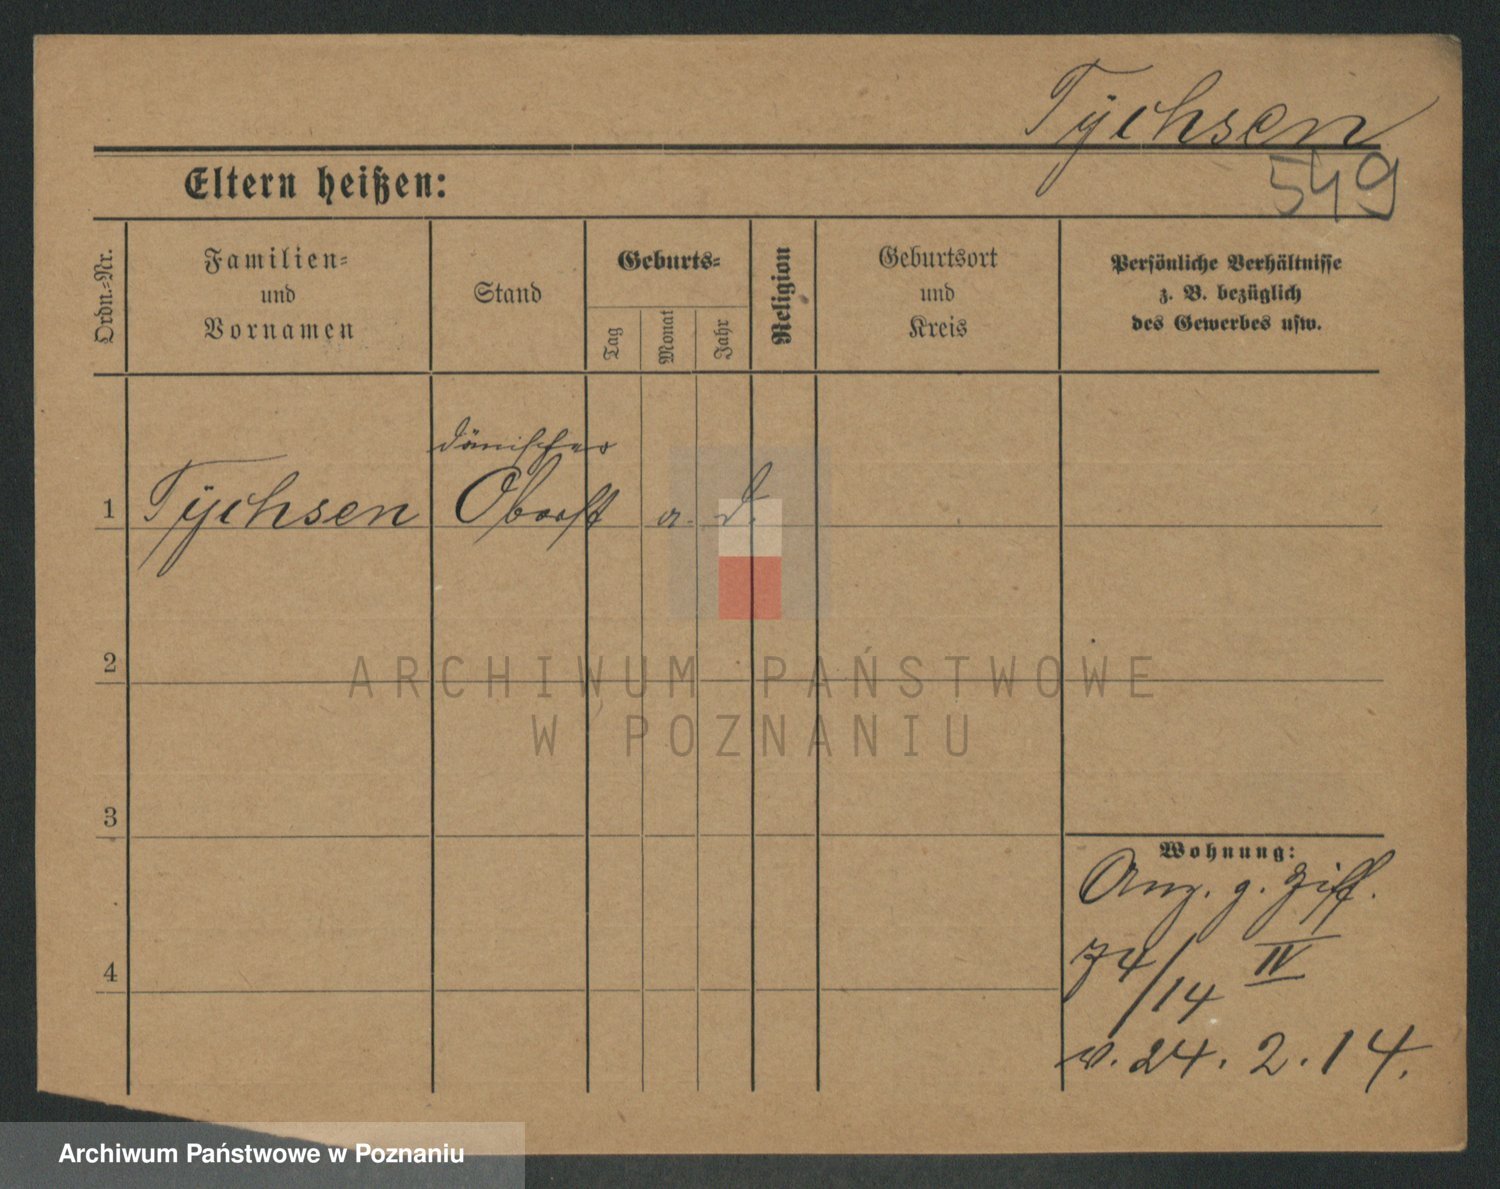 Tÿchsen
549
Eltern heißen:
Ordn.=Nr.
Familien=
und
Vornamen
Stand
Geburts=
Tag
Monat
Jahr
Religion
Geburtsort
und
Kreis
Persönliche Verhältnisse
z. B. bezüglich
des Gewerbes usw.
dänischer
1 Tÿchsen Oberst a. D.
2
ARCHIWUM PAŃSTWOWE
W POZNANIU
3
Wohnung:
Anz. g. Ziff.
74/14 IV
v. 24. 2. 14.
4
Archiwum Państwowe w Poznaniu